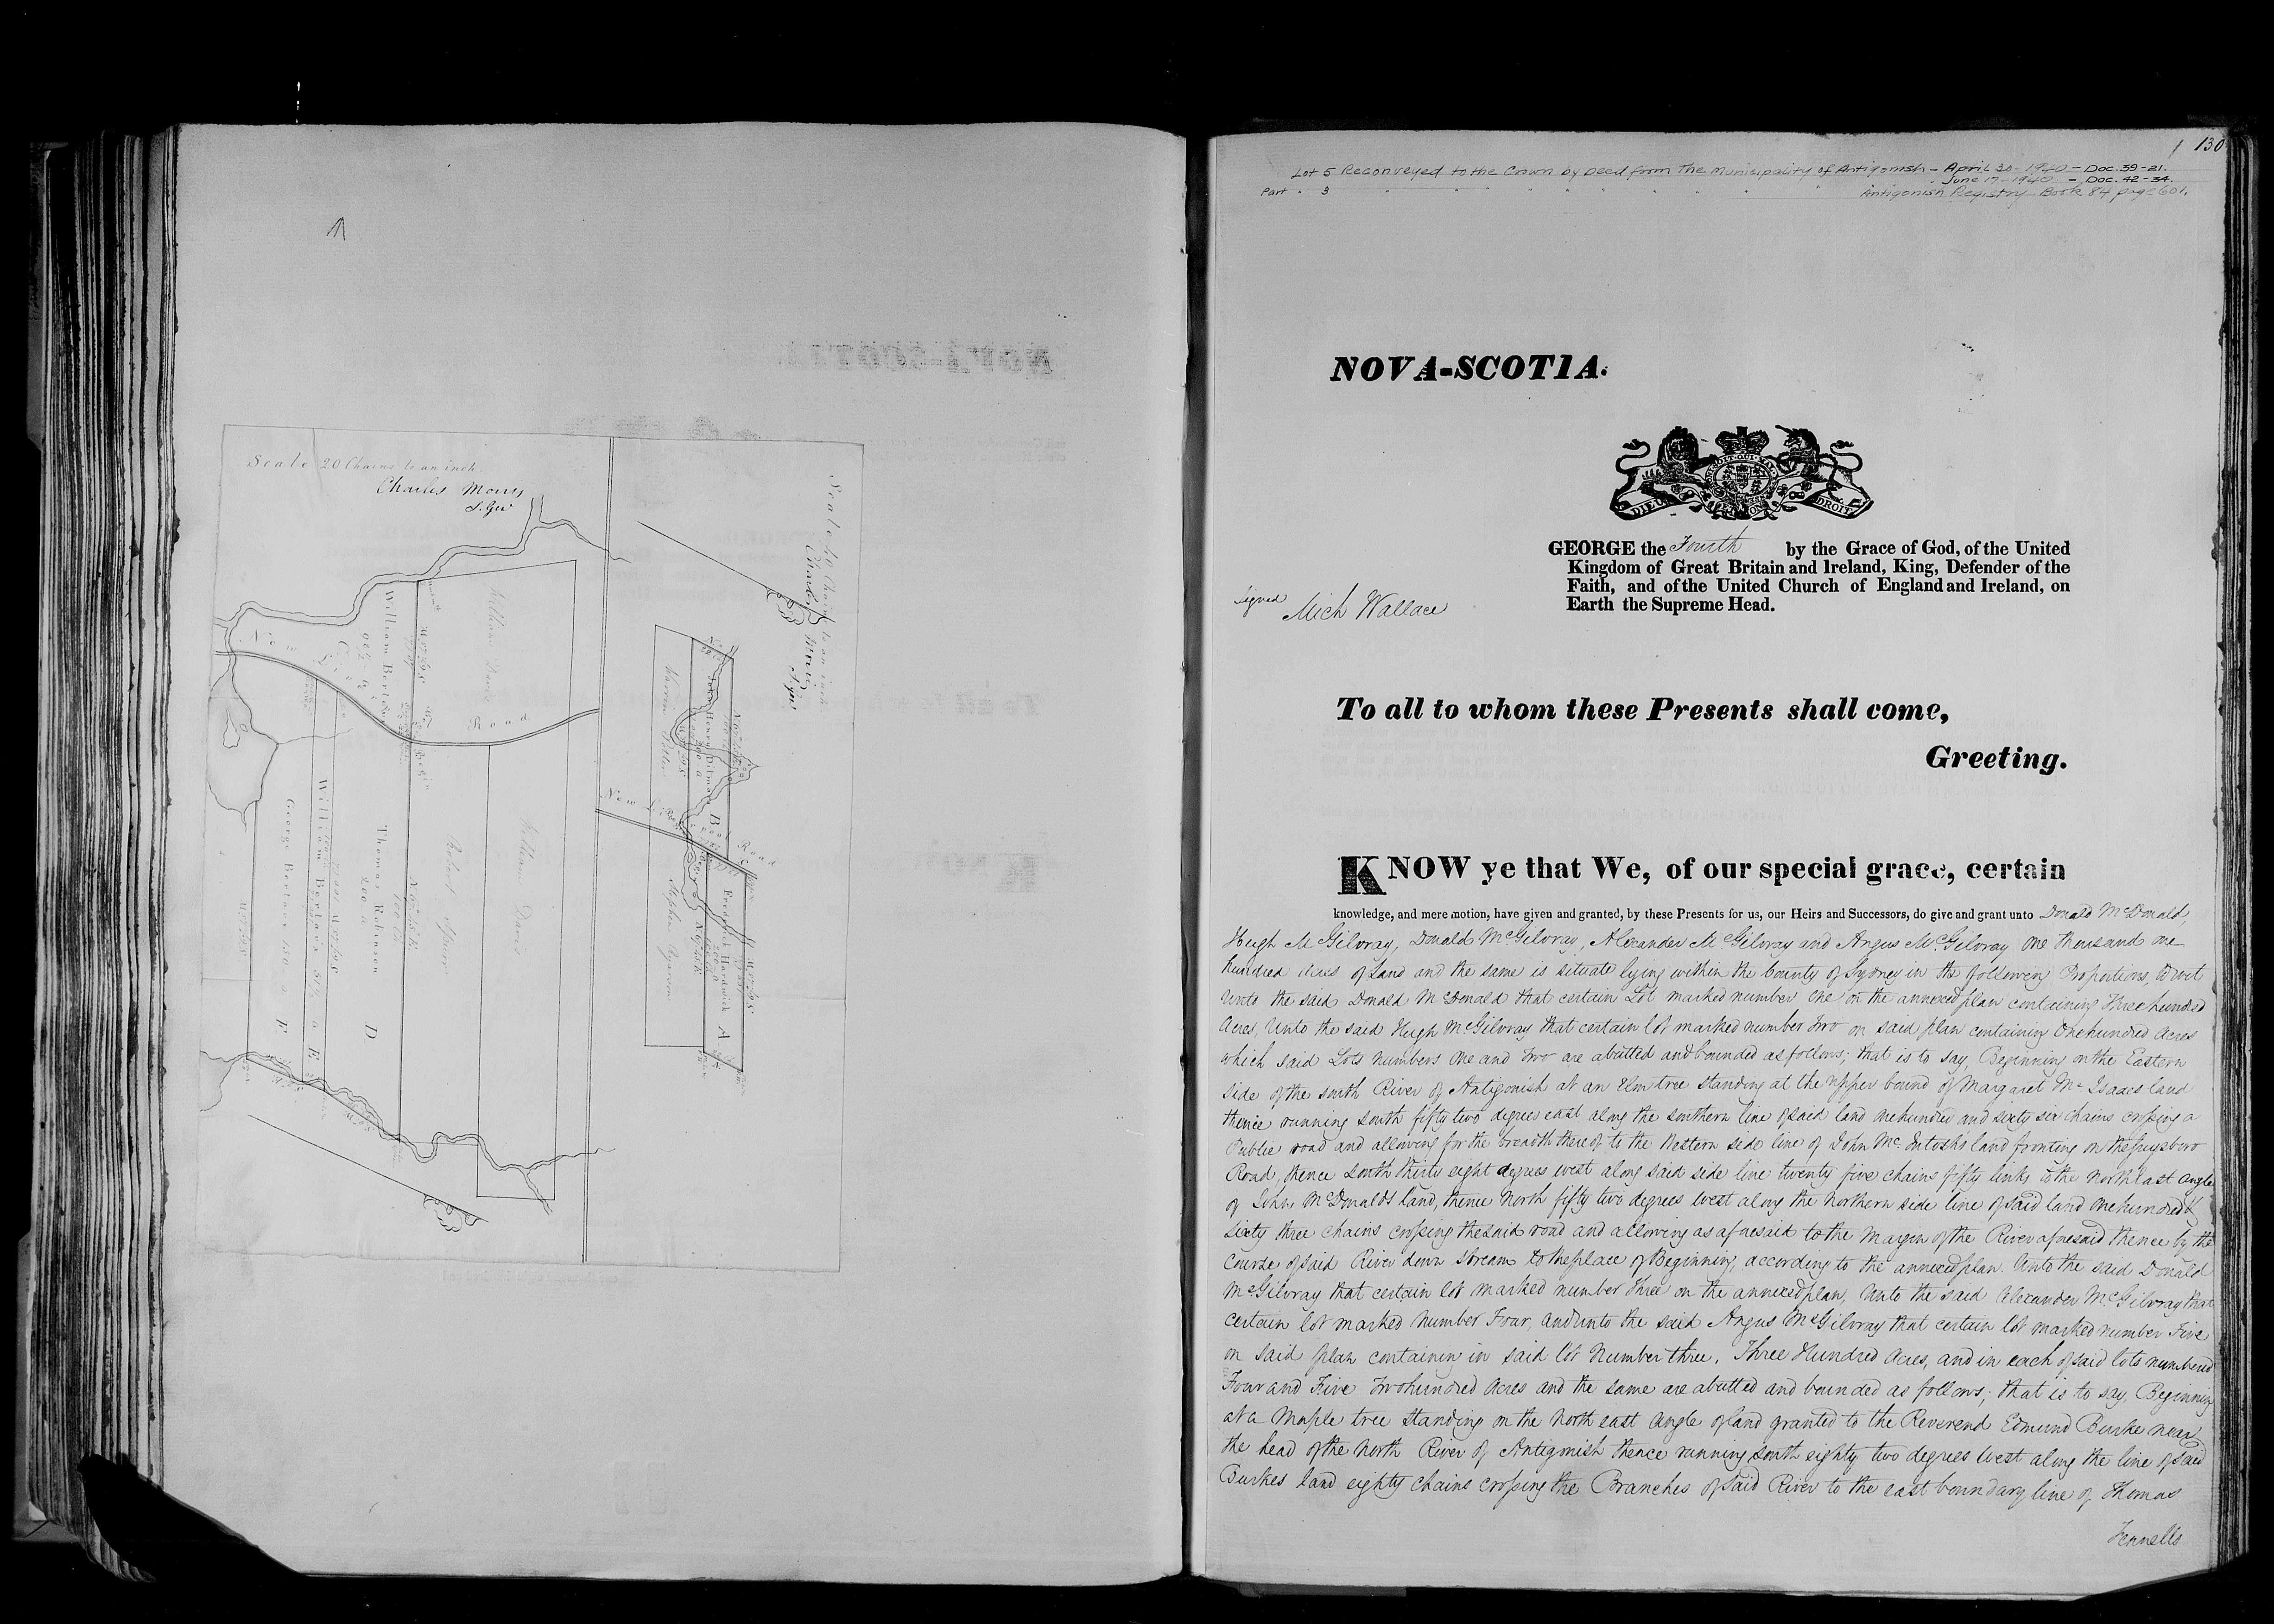 Scale 20 Chains to an inch
Charles Morris
S. Gen
William Bertaux
C
William Davis
New Line
Road
George Bertaux
F
William Bertaux
E
Thomas Robinson
200 a
D
William Davis
Charles Morris
B
New Line Road
Frederick Hardwick A
130
Lot 5 Reconveyed to the Crown by Deed from The Municipality of Antigonish - April 30 - 1940 - Doc. 39-21.
Part " 3 " " " " " " " " " " June 17 - 1940 - Doc. 42-34.
Antigonish Registry Book 84 page 601.
NOVA-SCOTIA.
DIEU ET MON DROIT
GEORGE the Fourth by the Grace of God, of the United
Kingdom of Great Britain and Ireland, King, Defender of the
Faith, and of the United Church of England and Ireland, on
Earth the Supreme Head.
Signed Mich Wallace
To all to whom these Presents shall come,
Greeting.
KNOW ye that We, of our special grace, certain
knowledge, and mere motion, have given and granted, by these Presents for us, our Heirs and Successors, do give and grant unto Donald McDonald,
Hugh McGilvray, Donald McGilvray, Alexander McGilvray and Angus McGilvray One thousand one
hundred Acres of Land and the same is situate lying within the County of Sydney in the following Proportions, to wit
Unto the said Donald McDonald that certain Lot marked number One on the annexed plan containing three hundred
Acres, Unto the said Hugh McGilvray that certain lot marked number Two on said plan containing One hundred Acres
which said Lots Numbers One and Two are abutted and bounded as follows; that is to say, Beginning on the Eastern
side of the South River of Antigonish at an Elm tree standing at the upper bound of Margaret McIsaacs land
thence running South fifty two degrees east along the southern line of said land one hundred and sixty six chains crossing a
Public road and allowing for the breadth thereof to the Western side line of John McIntoshs land fronting on the Guysboro
Road, thence South thirty eight degrees west along said side line twenty five chains fifty links to the North east angle
of John McDonalds land, thence North fifty two degrees west along the Northern side line of said land One hundred &
Sixty three chains crossing the said road and allowing as aforesaid to the Margin of the River aforesaid thence by the
Course of said River down Stream to the place of Beginning, according to the annexed plan. Unto the said Donald
McGilvray that certain lot marked number three on the annexed plan, Unto the said Alexander McGilvray that
certain lot marked Number Four, and unto the said Angus McGilvray that certain lot marked number Five
on said plan containin in said lot Number three, Three Hundred Acres, and in each of said lots numbered
Four and Five Two hundred Acres and the same are abutted and bounded as follows; that is to say, Beginning
at a Maple tree standing on the North east Angle of land granted to the Reverend Edmund Burke near
the head of the North River of Antigonish thence running South eighty two degrees West along the line of said
Burkes land eighty chains crossing the Branches of said River to the east boundary line of Thomas
Fennells